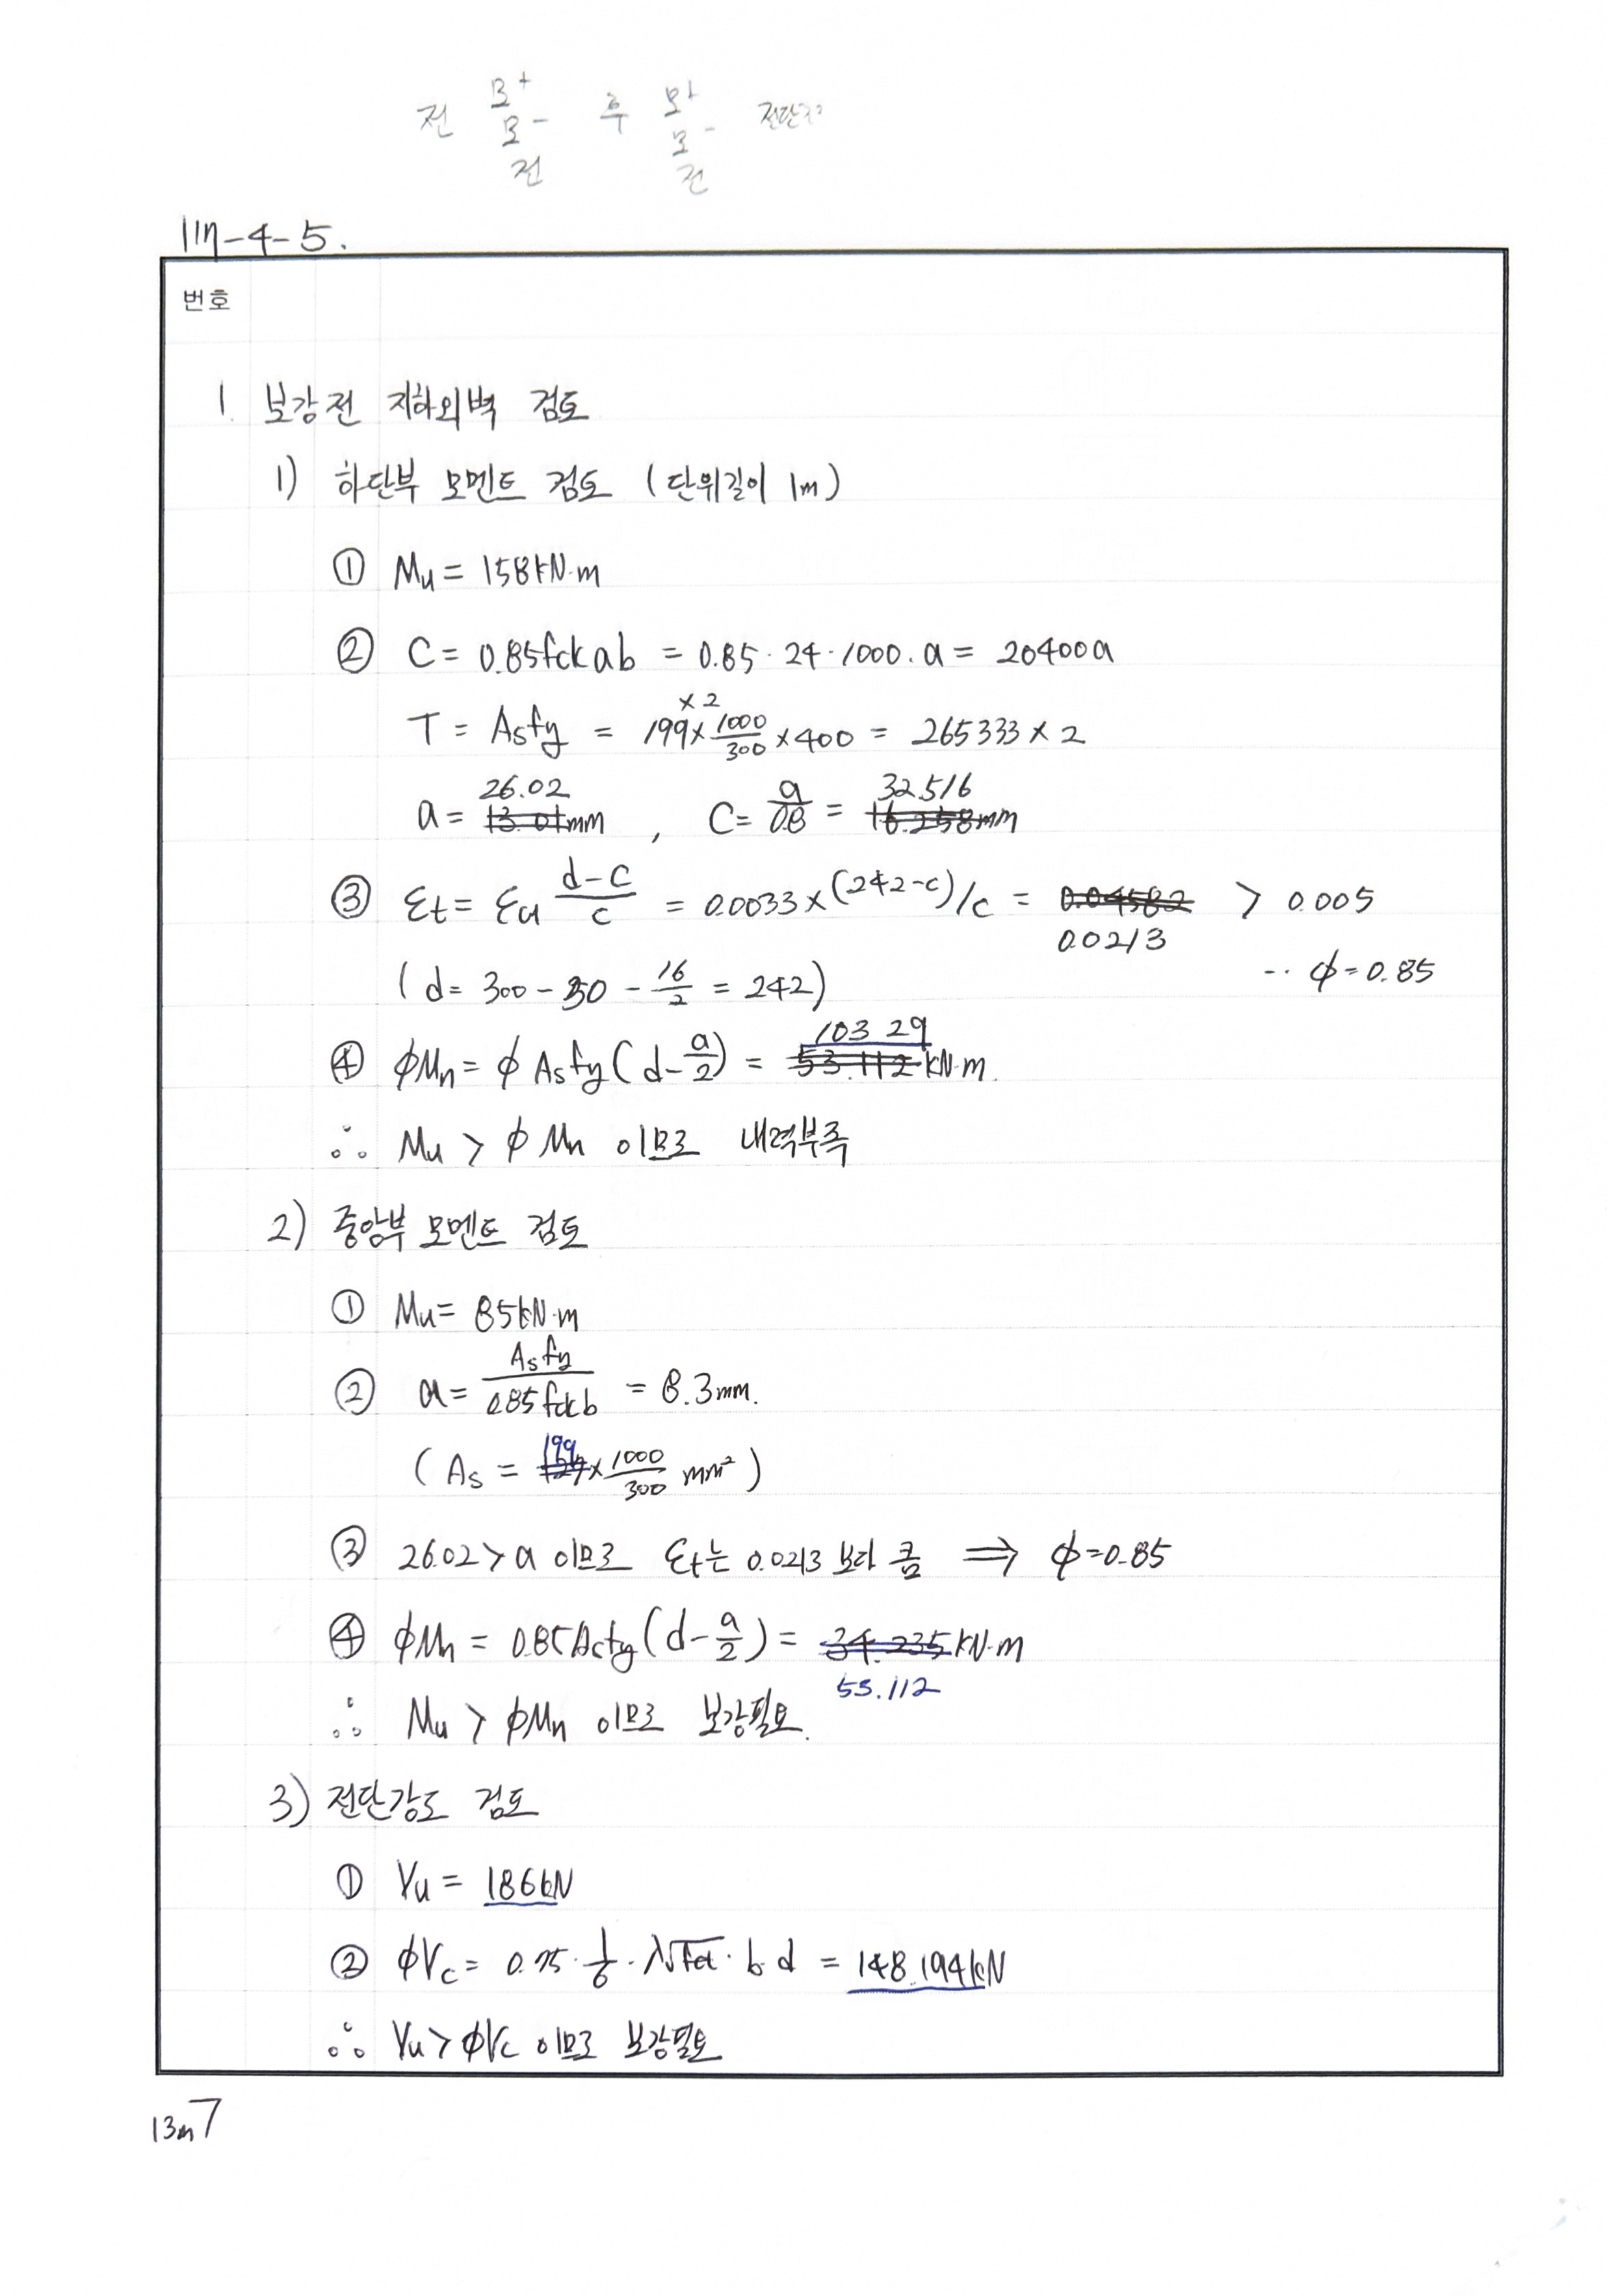 전 모+ 후 모+ 전단
모- 모-
전 전
117-4-5.
번호
1. 보강전 지하외벽 검토
1) 하단부 모멘트 검토 (단위길이 1m)
① Mu = 158kN·m
② C = 0.85fck ab = 0.85·24·1000·a = 20400a
×2
T = Asfy = 199×1000/300×400 = 265333×2
26.02 32.516
a = 13.01mm , C = a/0.8 = 16.258mm
③ εt = εu (d-c)/c = 0.0033×(242-c)/c = 0.04582 > 0.005
0.0213
(d = 300-50-16/2 = 242) ∴ φ=0.85
103.29
④ φMn = φ Asfy(d-a/2) = 53.112kN·m.
∴ Mu > φMn 이므로 내력부족
2) 중앙부 모멘트 검토
① Mu = 85kN·m
② a = Asfy/0.85fckb = 8.3mm.
199
(As = 127×1000/300 mm²)
③ 26.02>a 이므로 εt는 0.0213 보다 큼 ⇒ φ=0.85
④ φMn = 0.85Asfy(d-a/2) = 34.235kN·m
53.112
∴ Mu > φMn 이므로 보강필요.
3) 전단강도 검토
① Vu = 186kN
② φVc = 0.75·1/6·λ√fck·b·d = 148.194kN
∴ Vu > φVc 이므로 보강필요